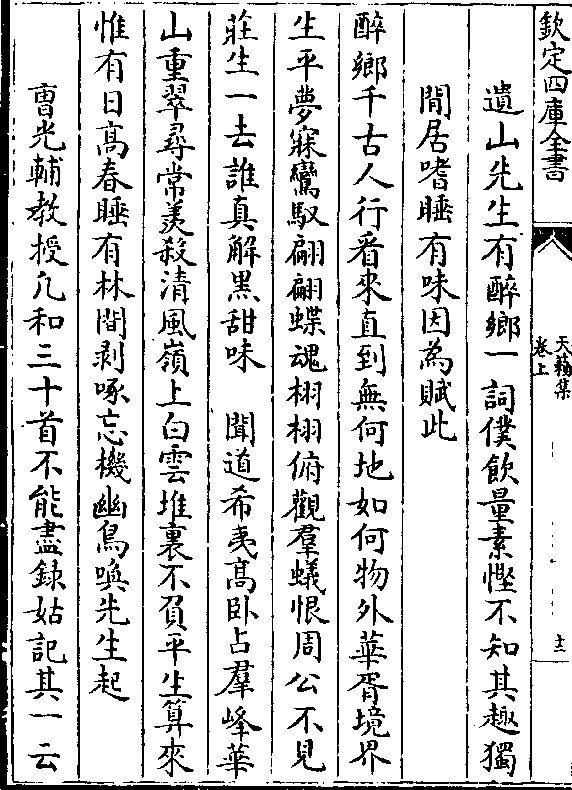 欽定四庫全書
天籟集
卷上
十二
遺山先生有醉鄉一詞僕飲量素慳不知其趣獨
閒居嗜睡有味因為賦此
醉鄉千古人行看來直到無何地如何物外華胥境界
生平夢寐鸞馭翩翩蝶魂栩栩俯觀羣蟻恨周公不見
莊生一去誰真解黑甜味　聞道希夷高卧占羣峰華
山重翠尋常羨殺清風嶺上白雲堆裏不負平生算來
惟有日高春睡有林間剥啄忘機幽鳥喚先生起
曹光輔教授凡和三十首不能盡録姑記其一云